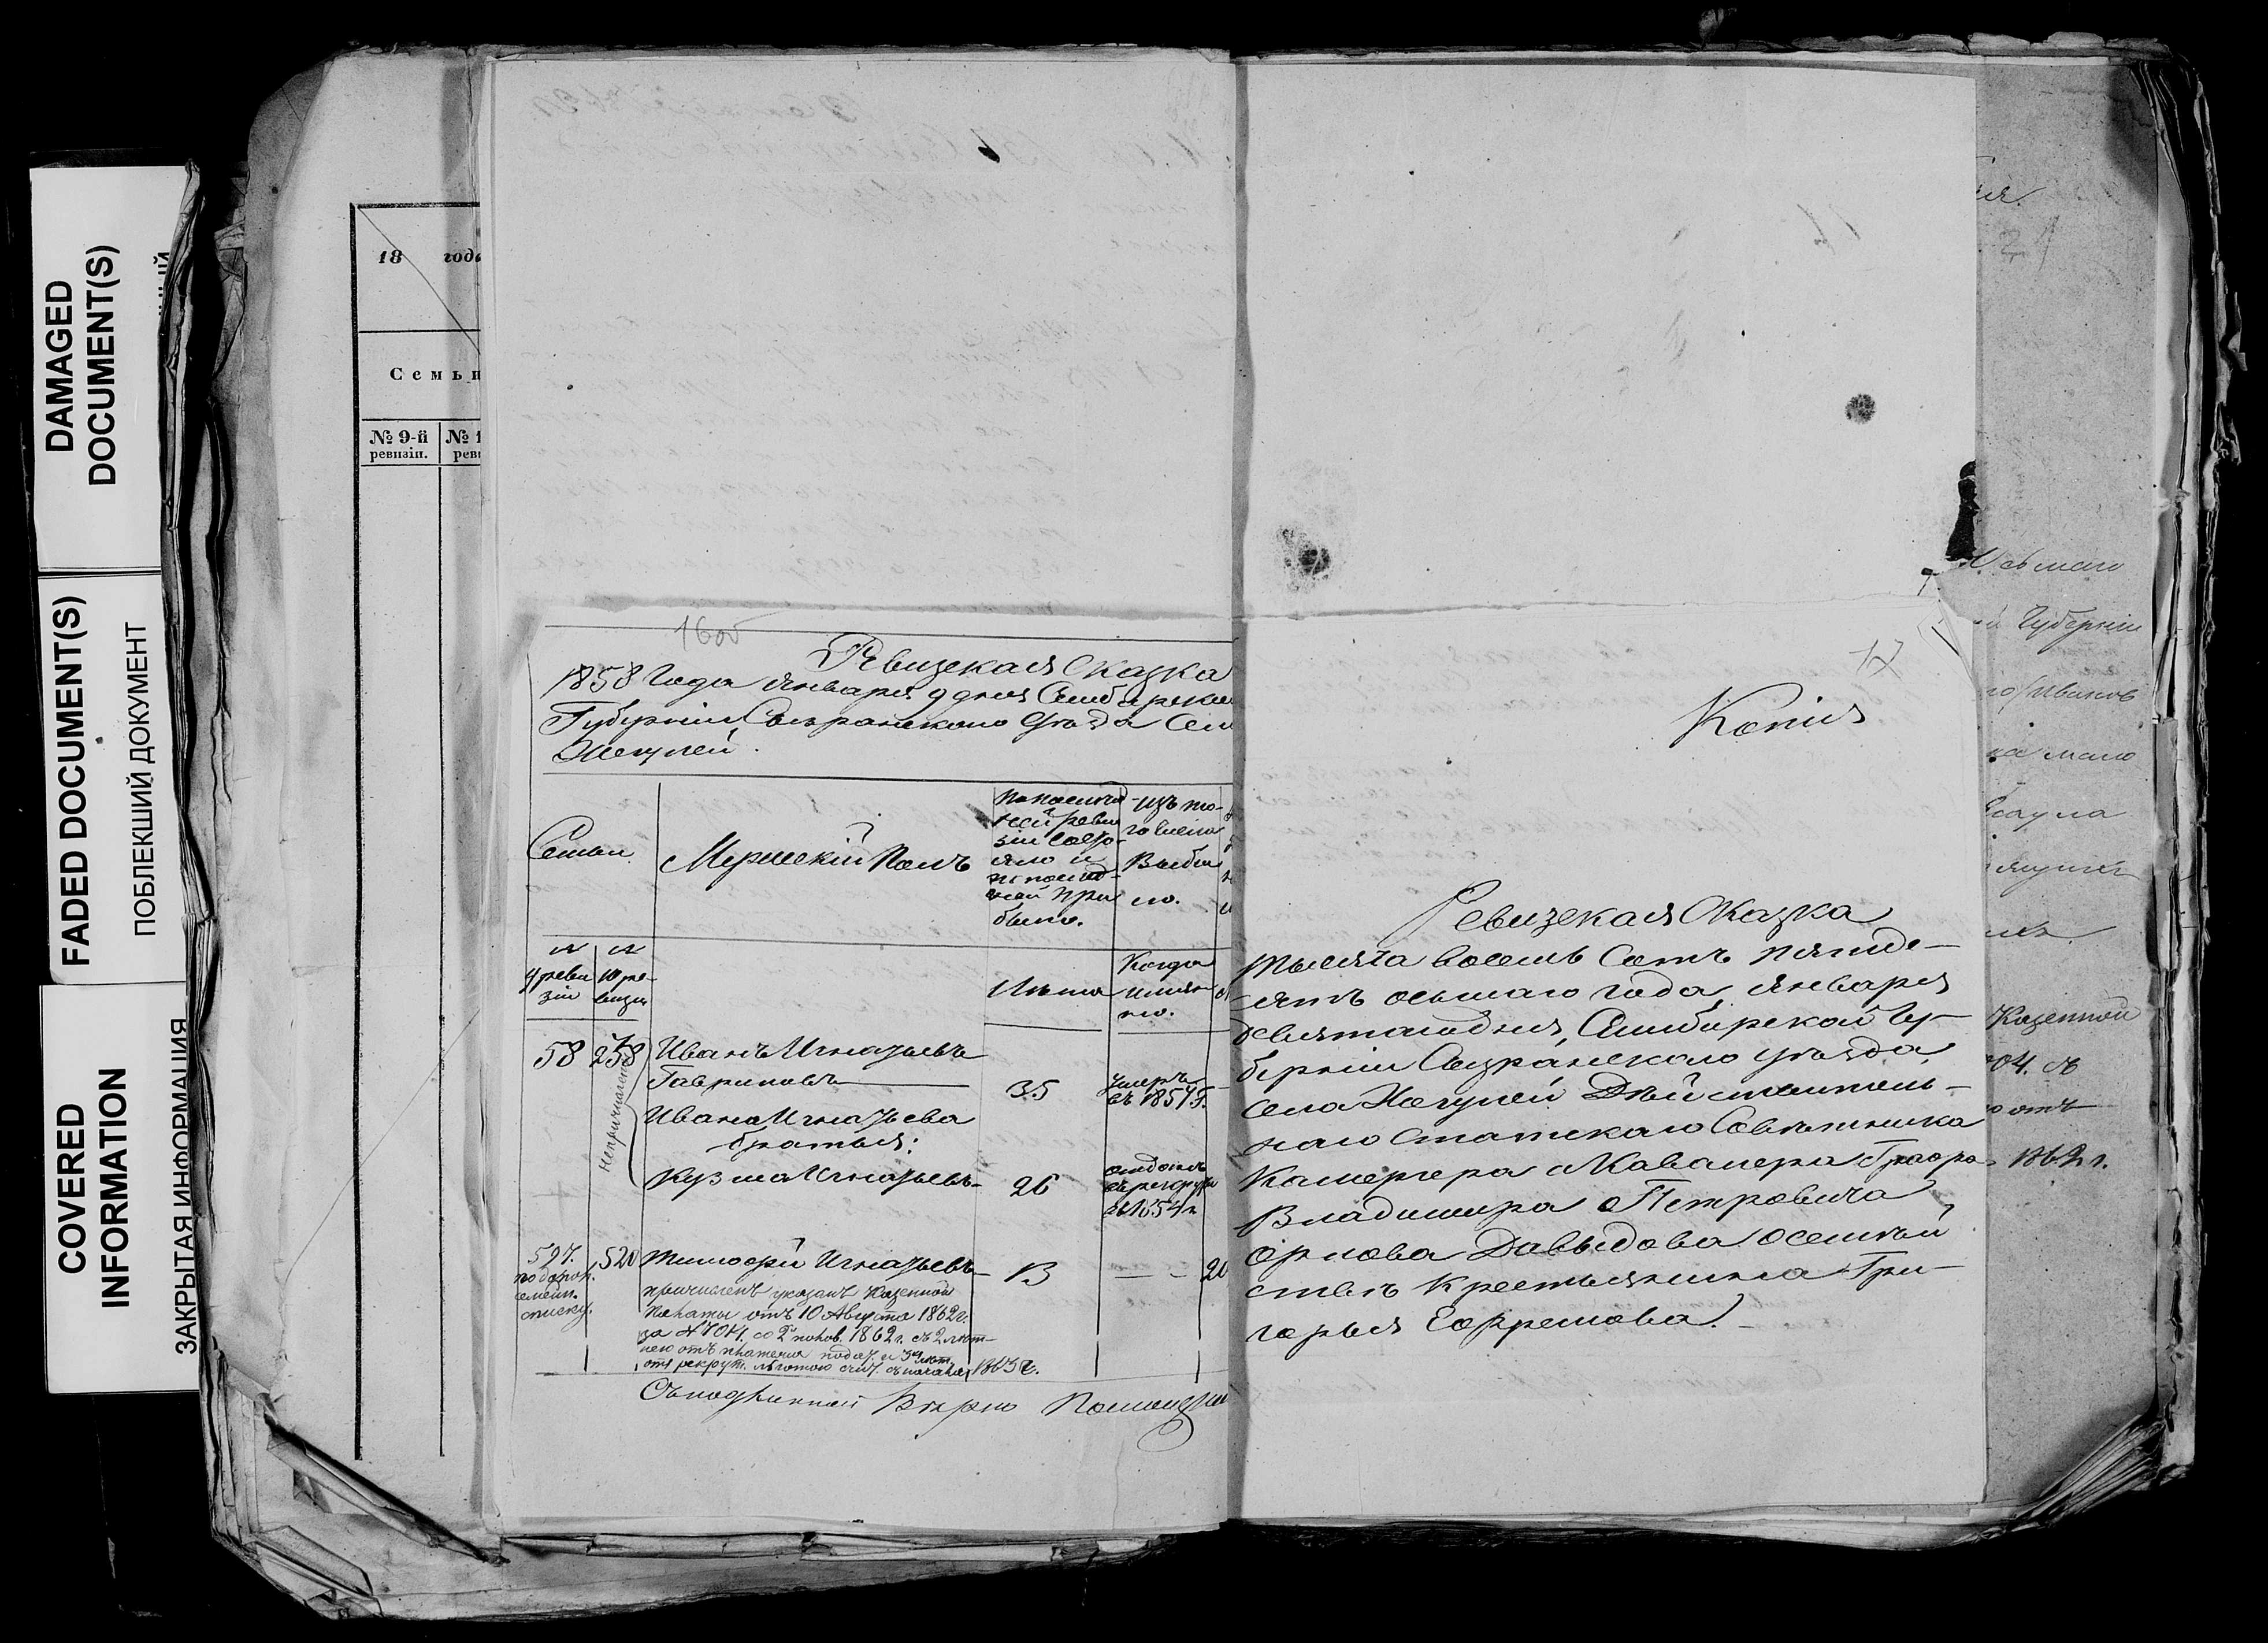 DAMAGED
DOCUMENT(S)
FADED DOCUMENT(S)
ПОБЛЕКШИЙ ДОКУМЕНТ
COVERED
INFORMATION
ЗАКРЫТАЯ ИНФОРМАЦИЯ
18 года
Семьи
№ 9-й ревизіи.
№ 1
реви
Ревизская Сказка
1858 Года Января 9 дня Симбирской
Губерніи Сызранскаго Уѣзда Сел
Жегулей.
Семьи
Мужескій Полъ
По послѣд
ней реви
зіи состо-
яло и
послѣ
оной при
было.
Изъ то-
го числа
Выбы
ло.
№
9 реви
зіи
№
10 ре-
визіи
Лѣта
Когда
имян
но.
58 258 Иванъ Игнатьевъ
Гавриловъ 35 умеръ
въ 1857 г.
Непричислены
Ивана Игнатьева
братья:
Кузма Игнатьевъ 26 отданъ
въ рекруты
въ 1854 г.
597. 520 Тимофей Игнатьевъ 13 — - 20
по дополн.
семейн.
списку.
причисленъ указомъ Казенной
Палаты отъ 10 Августа 1862 г.
за № 704. со 2й полов. 1862 г. съ 2 лѣт
нею отъ платежа подат. и 3х лѣт.
отъ рекрут. льготою счит. съ начала 1863 г.
Съ подлинной Вѣрно
17
Копія
Ревизская Сказка
тысяча восемь сотъ пятиде-
сятъ осьмаго года, Января
девятаго дня, Симбирской Гу-
берніи Сызранскаго уѣзда
Села Жегулей Дѣйствитель-
наго Статскаго Совѣтника
Камергера и Кавалера Графа
Владимира Петровича
Орлова Давыдова о семей
ствѣ Крестьянина Гри-
горья Ефремова.
Губерніи
Казенной
704. съ
отъ
1862 г.